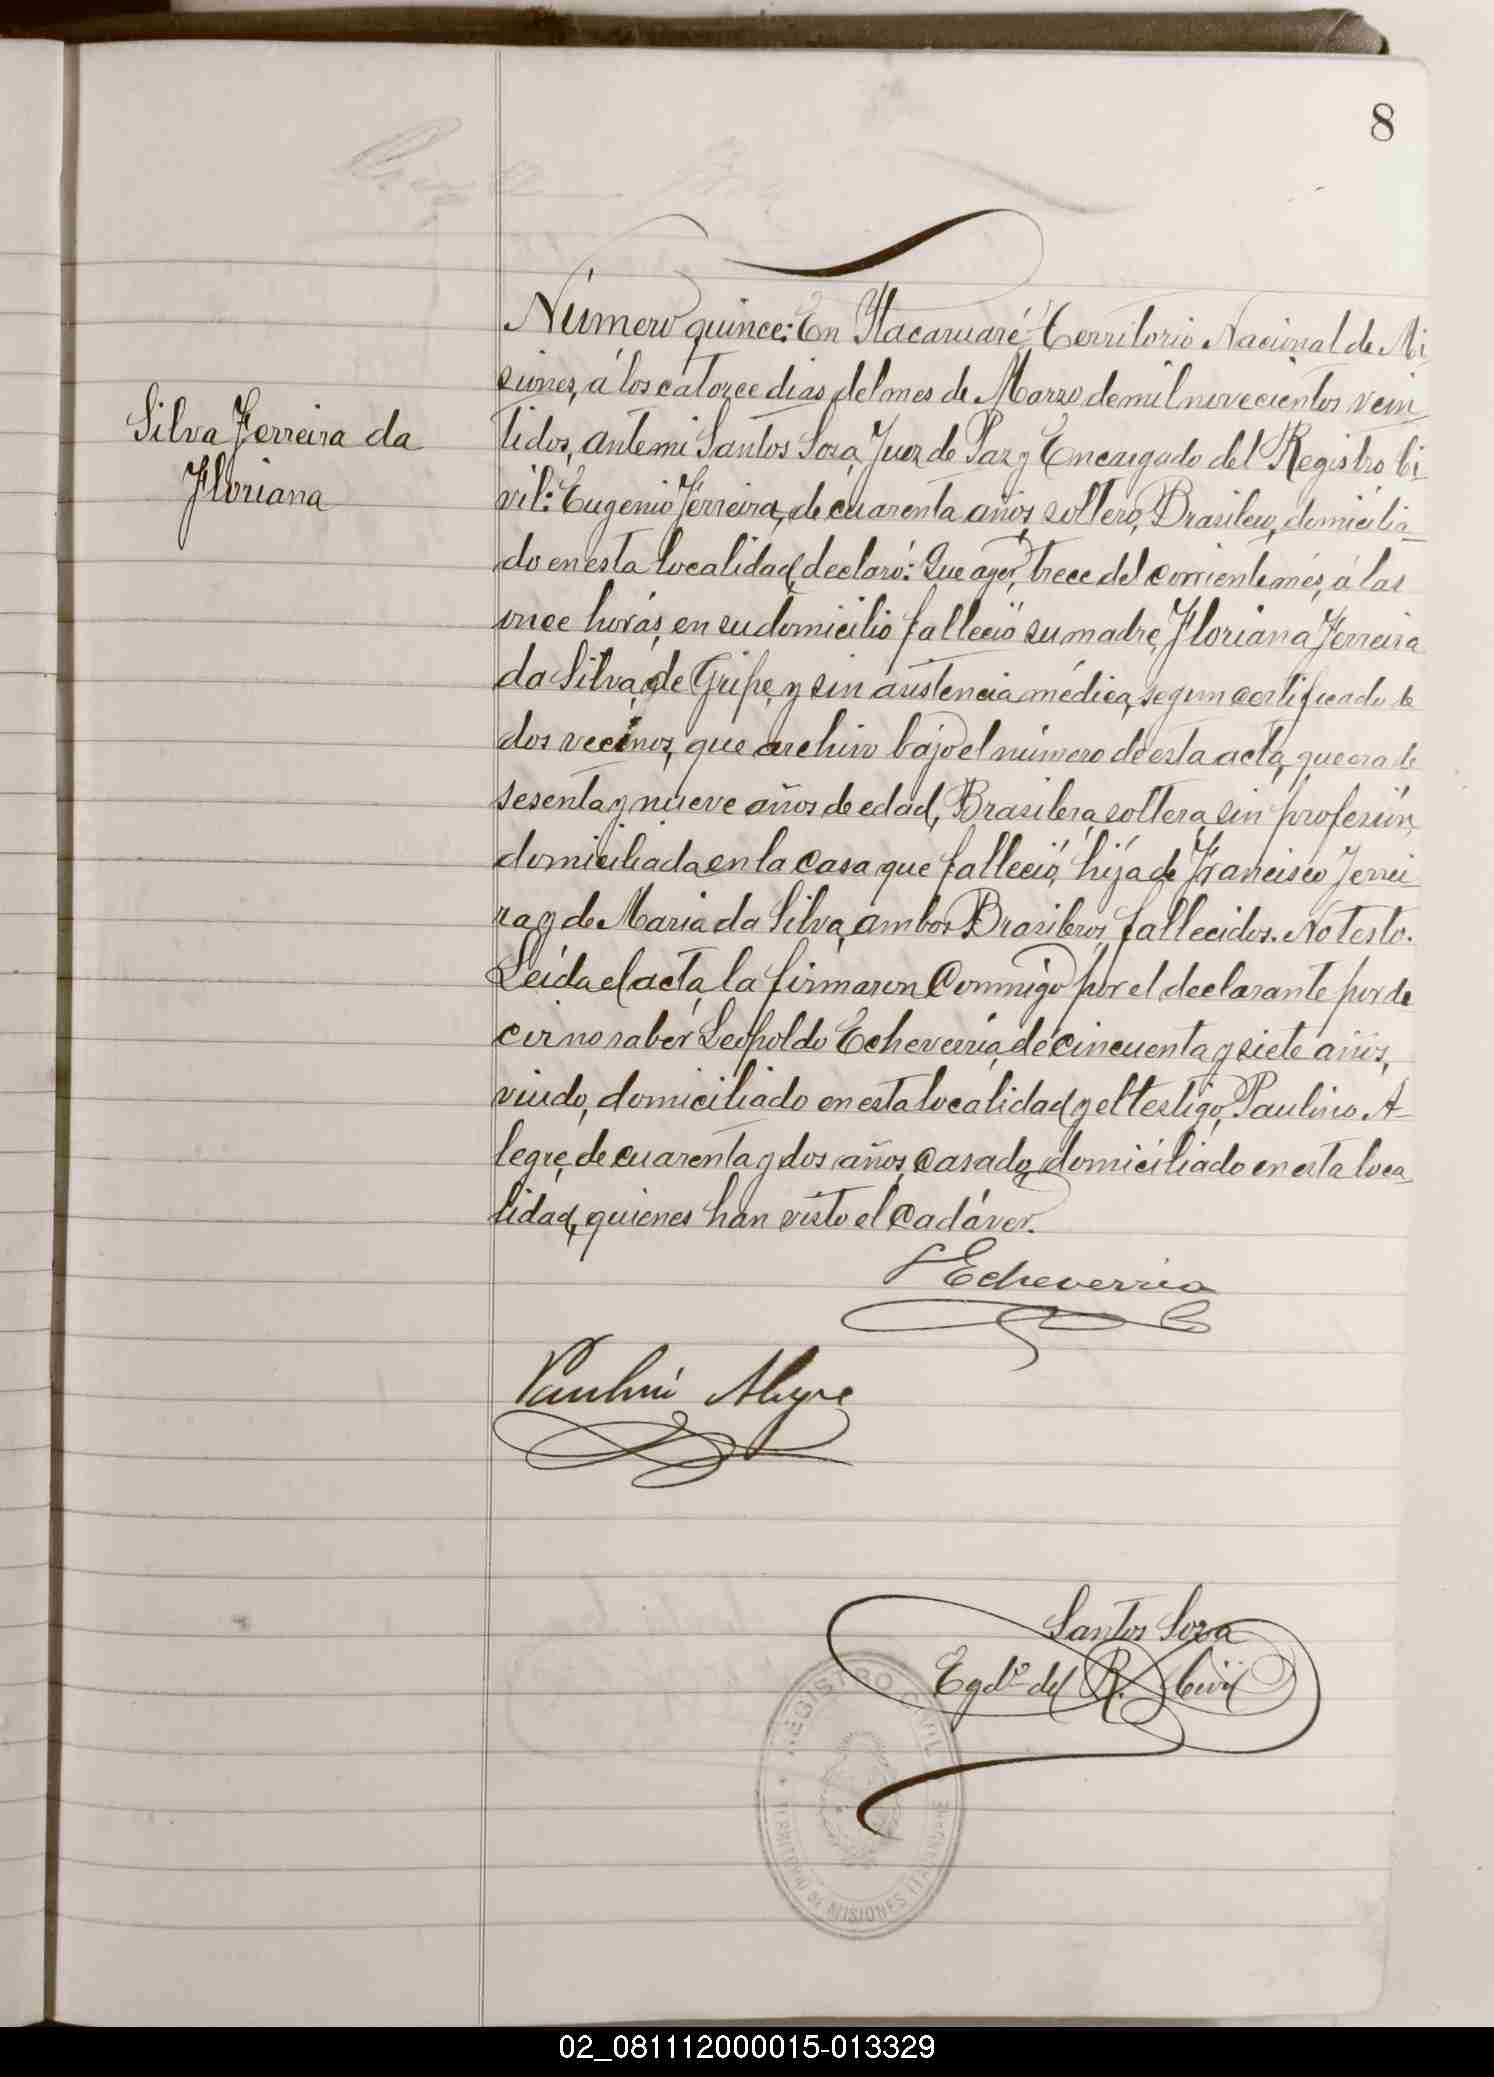 8
Silva Ferreira da
Floriana
Número quince: En Itacaruaré, Territorio Nacional de Mi
siones, á los catorce dias del mes de Marzo de mil novecientos vein
tidos, ante mi Santos Sosa, Juez de Paz y Encargado del Registro Ci-
vil: Eugenio Ferreira, de cuarenta años, soltero, Brasilero, domicilia-
do en esta localidad, declaró: Que ayer, trece del corriente mes, á las
once horas, en su domicilio falleció su madre, Floriana Ferreira
da Silva, de Gripe, y sin asistencia médica, segun certificado de
dos vecinos, que archivo bajo el número de esta acta, que era de
sesenta y nueve años de edad, Brasilera, soltera, sin profesión,
domiciliada en la casa que falleció, hija de Francisco Ferrei
ra y de Maria da Silva, ambos Brasileros, fallecidos. No testo.
Leida el acta, la firmaron conmigo por el declarante por de
cir no saber Leopoldo Echeverria, de cincuenta y siete años,
viudo, domiciliado en esta localidad y el testigo, Paulino A-
legre, de cuarenta y dos años, casado, domiciliado en esta loca-
lidad, quienes han visto el cadáver.
LEcheverria
Paulino Alegre
Santos Sosa
Egdo. del R. Civil
REGISTRO CIVIL
TERRITORIO DE MISIONES ITACARUARÉ
02_081112000015-013329